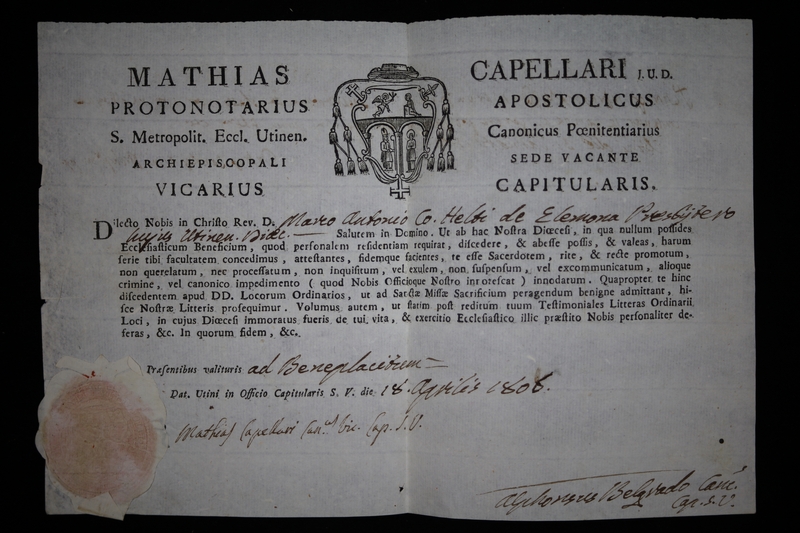 MATHIAS CAPELLARI J. U. D.
PROTONOTARIUS APOSTOLICUS
S. Metropolit. Eccl. Utinen. Canonicus Pœnitentiarius
ARCHIEPISCOPALI SEDE VACANTE
VICARIUS CAPITULARIS.
Dilecto Nobis in Christo Rev. D. Marco Antonio Co. de Presbÿtero
hujus Utinen. Diœc. — Salutem in Domino. Ut ab hac Nostra Diœcesi, in qua nullum possides
Ecclesiasticum Beneficium, quod personalem residentiam requirat, discedere, & abesse possis, & valeas, harum
serie tibi facultatem concedimus, attestantes, fidemque facientes, te esse Sacerdotem, rite, & recte promotum,
non querelatum, nec processatum, non inquisitum, vel exulem, non suspensum, vel excommunicatum, alioque
crimine, vel canonico impedimento ( quod Nobis Officioque Nostro innotescat ) innodatum. Quapropter te hinc
discedentem apud DD. Locorum Ordinarios, ut ad Sactæ Missæ Sacrificium peragendum benigne admittant, hi-
sce Nostræ Litteris prosequimur. Volumus autem, ut statim post reditum tuum Testimoniales Litteras Ordinarii
Loci, in cujus Diœcesi immoratus fueris de tui vita, & exercitio Ecclesiastico illic præstito Nobis personaliter de-
feras, &c. In quorum fidem, &c.
Præsentibus valituris ad Beneplacitum —
Dat. Utini in Officio Capitularis S. V. die 18. Aprilis 1808.
Mathias Capellari Can.us Vic. Cap. S. V.
Alphonsus Belgrado Canc.
Cap. S. V.